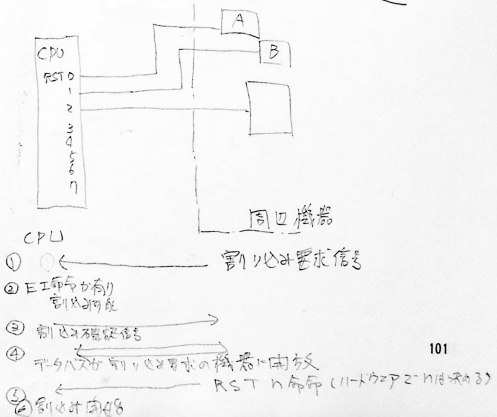 A
CPU
B
RST 0
1
2
3
4
5
6
7
周辺機器
CPU
① ← 割り込み要求信号
② EI命令が有り
割込み可能
③ 割り込み確認信号
④ データバスが割り込み要求の機器に開放
101
⑤ RST n命令(ハードウェアでnは決める)
⑥ 割込み開始